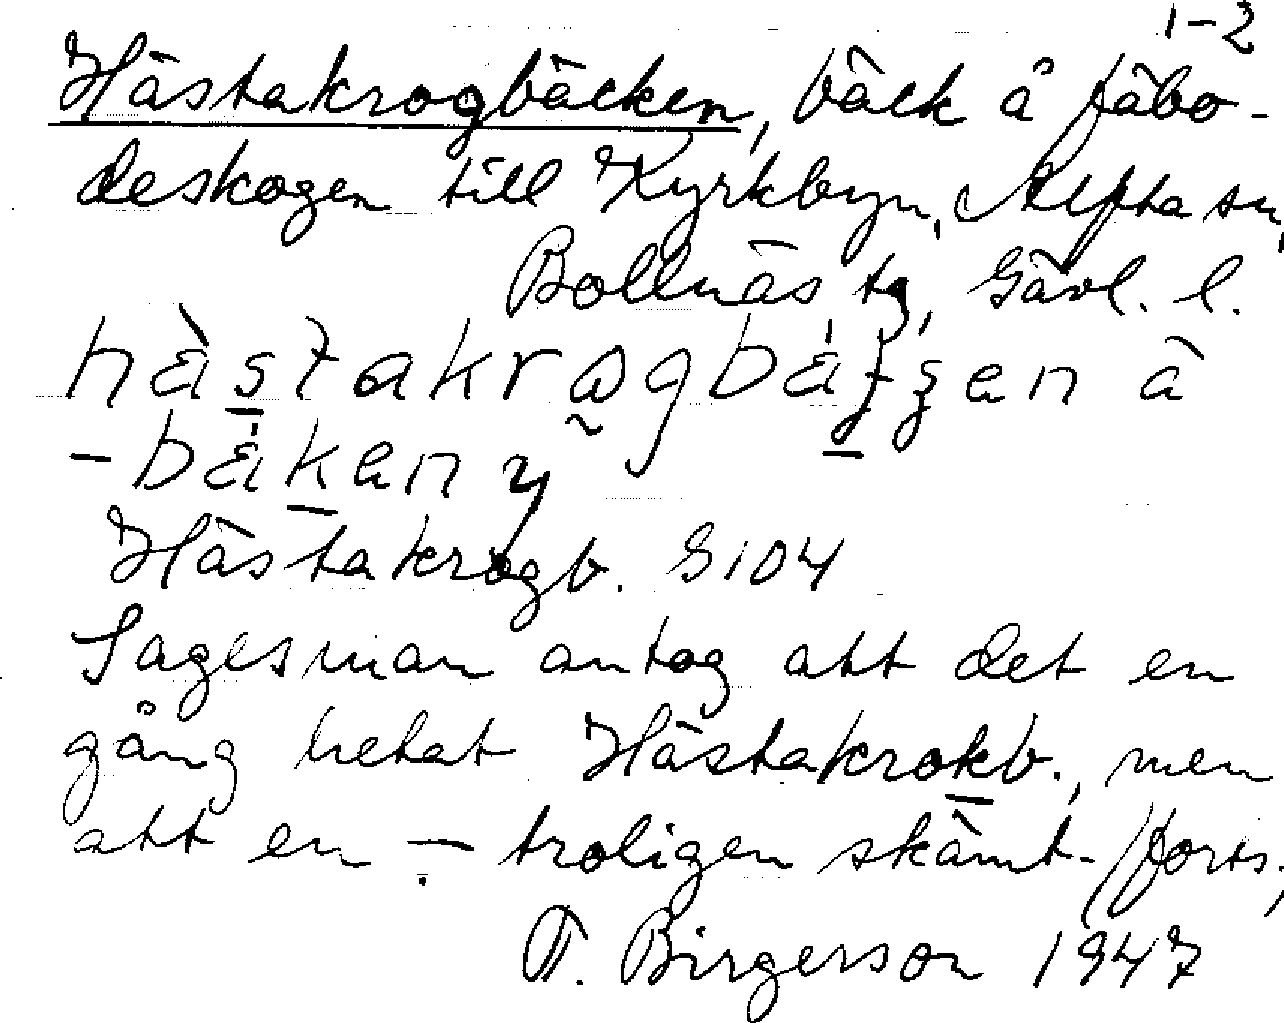 1-2
Hästakrogbäcken, bäck å fäbo-
deskogen till Kyrkbyn, Alfta sn,
Bollnäs tg, Gävl. l.
hàstakrågbátʃen à
-bákan y
Hästakrogb. S104
Sagesman antog att det en
gång hetat Hästakrokb., men
att en - troligen skämt- /forts.,
T. Birgerson 1947